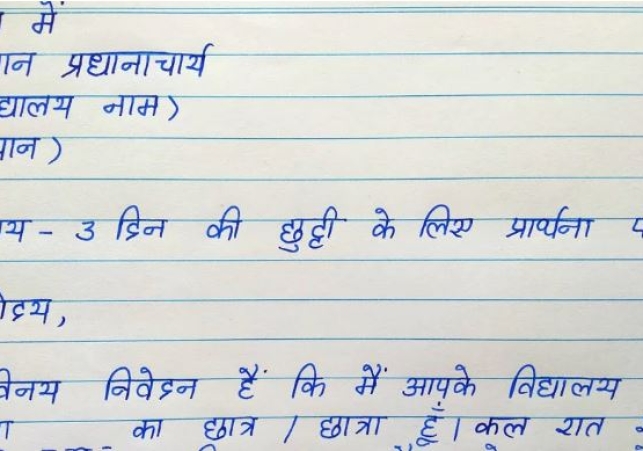 में
प्रधानाचार्य
नाम)
- 3 दिन की छुट्टी के लिए प्रार्थना
निवेदन हैं कि मैं आपके विद्यालय
का छात्र / छात्रा हूँ। कल रात